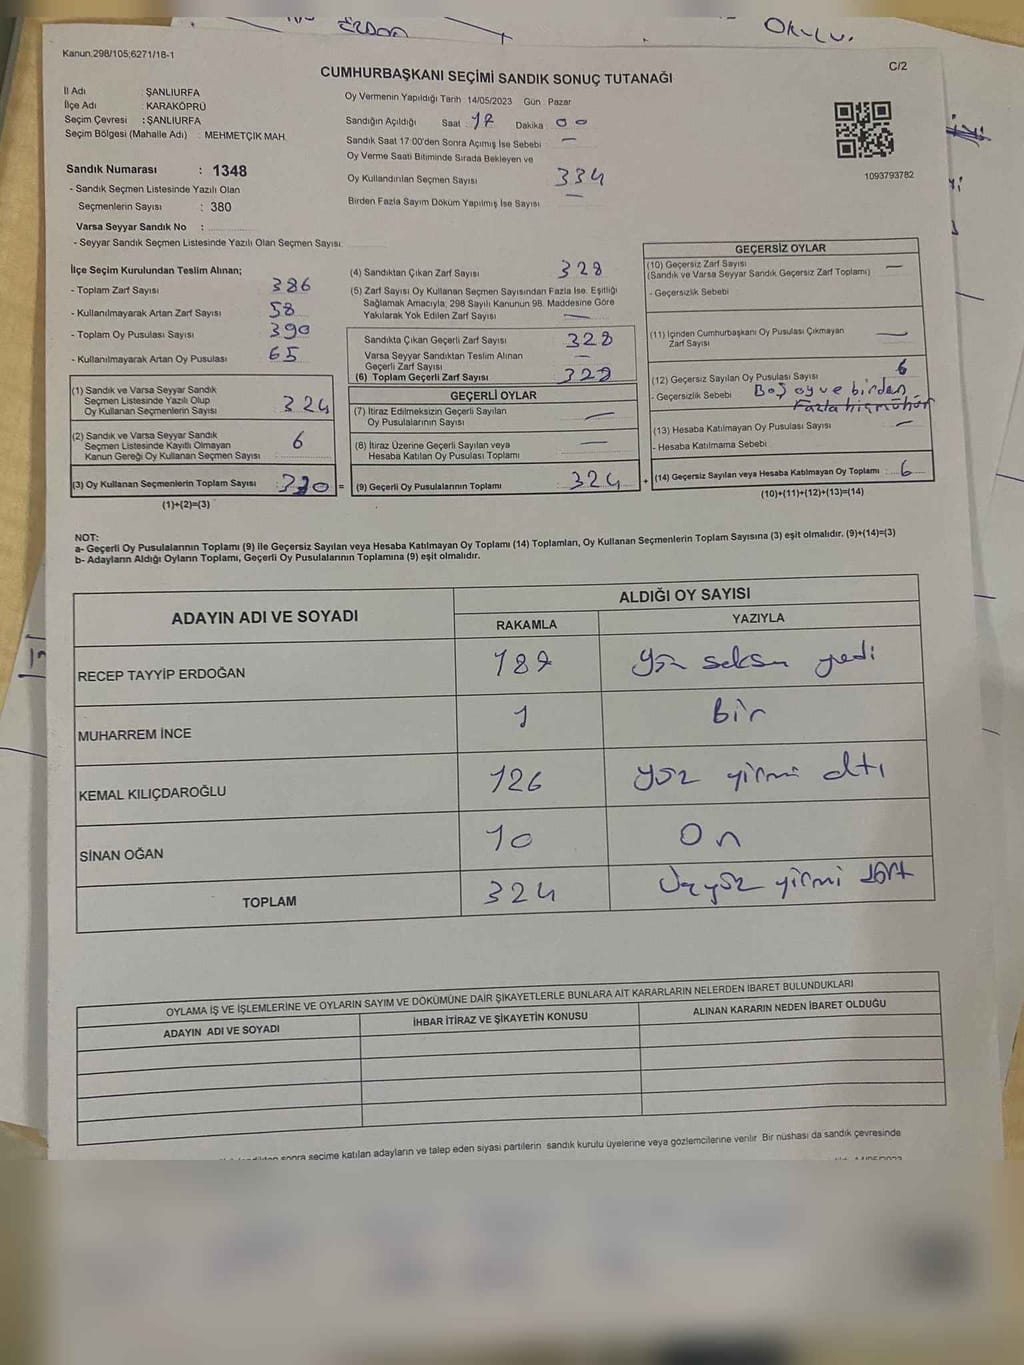 ERDOA
OKULU.
Kanun:298/105;6271/18-1
C/2
CUMHURBAŞKANI SEÇİMİ SANDIK SONUÇ TUTANAĞI
İl Adı : ŞANLIURFA
İlçe Adı : KARAKÖPRÜ
Seçim Çevresi : ŞANLIURFA
Seçim Bölgesi (Mahalle Adı) : MEHMETÇİK MAH.
Sandık Numarası : 1348
- Sandık Seçmen Listesinde Yazılı Olan
Seçmenlerin Sayısı : 380
Varsa Seyyar Sandık No :
- Seyyar Sandık Seçmen Listesinde Yazılı Olan Seçmen Sayısı:
Oy Vermenin Yapıldığı Tarih : 14/05/2023 Gün : Pazar
Sandığın Açıldığı Saat : 17 Dakika : 00
Sandık Saat 17:00'den Sonra Açımış İse Sebebi : —
Oy Verme Saati Bitiminde Sırada Bekleyen ve
Oy Kullandırılan Seçmen Sayısı : 334
Birden Fazla Sayım Döküm Yapılmış İse Sayısı : —
1093793782
İlçe Seçim Kurulundan Teslim Alınan;
- Toplam Zarf Sayısı : 386
- Kullanılmayarak Artan Zarf Sayısı : 58
- Toplam Oy Pusulası Sayısı : 390
- Kullanılmayarak Artan Oy Pusulası : 65
(1) Sandık ve Varsa Seyyar Sandık
Seçmen Listesinde Yazılı Olup
Oy Kullanan Seçmenlerin Sayısı : 324
(2) Sandık ve Varsa Seyyar Sandık
Seçmen Listesinde Kayıtlı Olmayan
Kanun Gereği Oy Kullanan Seçmen Sayısı : 6
(3) Oy Kullanan Seçmenlerin Toplam Sayısı : 330 =
(1)+(2)=(3)
(4) Sandıktan Çıkan Zarf Sayısı : 328
(5) Zarf Sayısı Oy Kullanan Seçmen Sayısından Fazla İse, Eşitliği
Sağlamak Amacıyla; 298 Sayılı Kanunun 98. Maddesine Göre
Yakılarak Yok Edilen Zarf Sayısı : —
Sandıkta Çıkan Geçerli Zarf Sayısı : 328
Varsa Seyyar Sandıktan Teslim Alınan
Geçerli Zarf Sayısı : —
(6) Toplam Geçerli Zarf Sayısı : 328
GEÇERLİ OYLAR
(7) İtiraz Edilmeksizin Geçerli Sayılan
Oy Pusulalarının Sayısı : —
(8) İtiraz Üzerine Geçerli Sayılan veya
Hesaba Katılan Oy Pusulası Toplamı : —
(9) Geçerli Oy Pusulalarının Toplamı : 324 +
GEÇERSİZ OYLAR
(10) Geçersiz Zarf Sayısı : —
(Sandık ve Varsa Seyyar Sandık Geçersiz Zarf Toplamı)
- Geçersizlik Sebebi
(11) İçinden Cumhurbaşkanı Oy Pusulası Çıkmayan
Zarf Sayısı : —
(12) Geçersiz Sayılan Oy Pusulası Sayısı : 6
- Geçersizlik Sebebi : Boş oy ve birden
Fazla
(13) Hesaba Katılmayan Oy Pusulası Sayısı : —
- Hesaba Katılmama Sebebi :
(14) Geçersiz Sayılan veya Hesaba Katılmayan Oy Toplamı : 6
(10)+(11)+(12)+(13)=(14)
NOT:
a- Geçerli Oy Pusulalarının Toplamı (9) ile Geçersiz Sayılan veya Hesaba Katılmayan Oy Toplamı (14) Toplamları, Oy Kullanan Seçmenlerin Toplam Sayısına (3) eşit olmalıdır. (9)+(14)=(3)
b- Adayların Aldığı Oyların Toplamı, Geçerli Oy Pusulalarının Toplamına (9) eşit olmalıdır.
ADAYIN ADI VE SOYADI ALDIĞI OY SAYISI
RAKAMLA YAZIYLA
RECEP TAYYİP ERDOĞAN 187 Yüz seksen yedi
MUHARREM İNCE 1 bir
KEMAL KILIÇDAROĞLU 126 yüz yirmi altı
SİNAN OĞAN 10 On
TOPLAM 324 Üçyüz yirmi dört
OYLAMA İŞ VE İŞLEMLERİNE VE OYLARIN SAYIM VE DÖKÜMÜNE DAİR ŞİKAYETLERLE BUNLARA AİT KARARLARIN NELERDEN İBARET BULUNDUKLARI
ADAYIN ADI VE SOYADI İHBAR İTİRAZ VE ŞİKAYETİN KONUSU ALINAN KARARIN NEDEN İBARET OLDUĞU
sonra seçime katılan adayların ve talep eden siyasi partilerin sandık kurulu üyelerine veya gözlemcilerine verilir. Bir nüshası da sandık çevresinde